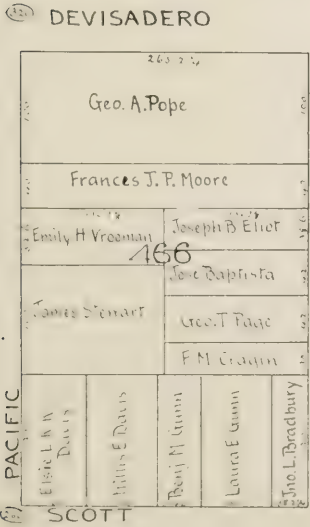 DEVISADERO
Geo. A. Pope
Frances J. P. Moore
Emily H Vrooman
Joseph B Eliot
466
Jose Baptista
James
Geo. T Page
F M Cragin
PACIFIC
Elsie
Davis
Willis E Davis
Benj M Gunn
Laura E Gunn
Jno. L. Bradbury
SCOTT